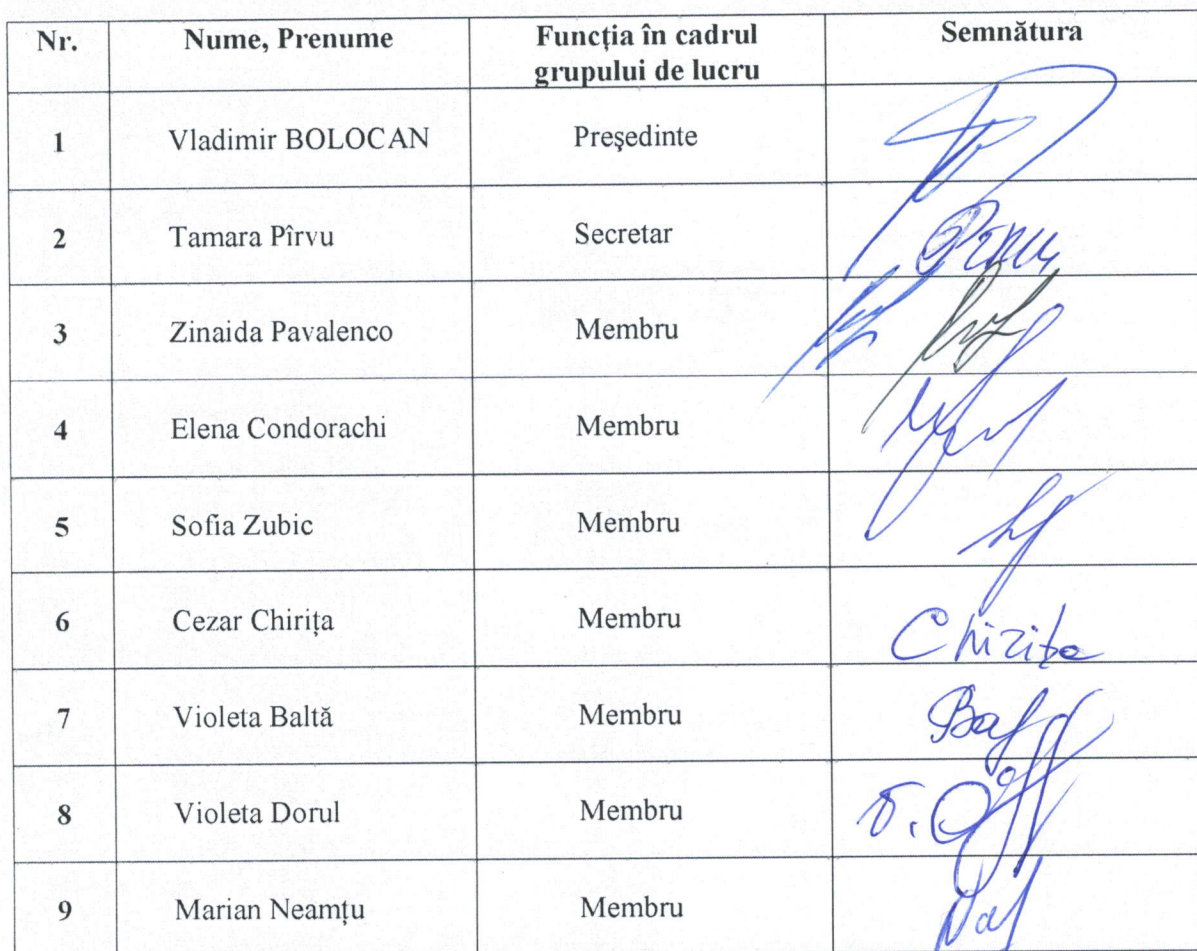 Nr. Nume, Prenume Funcția în cadrul Semnătura
grupului de lucru
1 Vladimir BOLOCAN Președinte
2 Tamara Pîrvu Secretar
3 Zinaida Pavalenco Membru
4 Elena Condorachi Membru
5 Sofia Zubic Membru
6 Cezar Chirița Membru Chirița
7 Violeta Baltă Membru
8 Violeta Dorul Membru
9 Marian Neamțu Membru